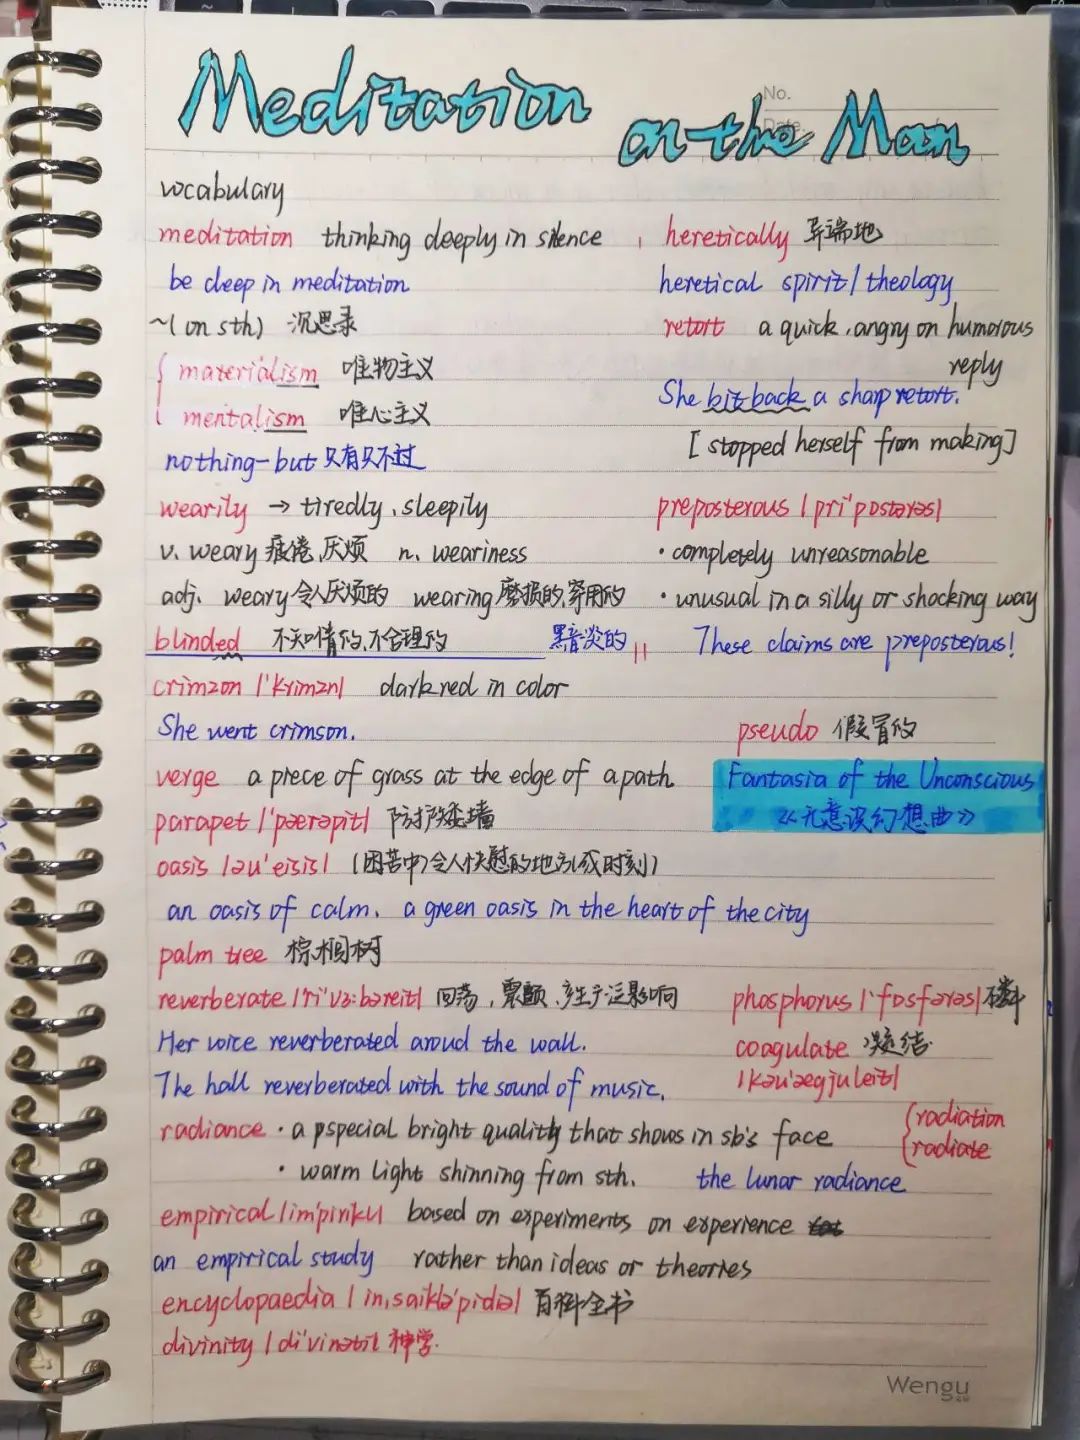 Meditation
on the Moon
No.
Date
vocabulary
meditation thinking deeply in silence
be deep in meditation
~(on sth) 沉思录
materialism 唯物主义
mentalism 唯心主义
nothing-but 只有只不过
wearily → tiredly、sleepily
v. weary 疲倦、厌烦 n. weariness
adj. weary 令人厌烦的 wearing 磨损的、穿用的
blinded 不知情的、不合理的 黑暗淡的
crimzon /'krimzn/ dark red in color
She went crimson.
verge a piece of grass at the edge of a path
parapet /'pærəpit/ 防护矮墙
oasis /əu'eisis/ (困苦中)令人快慰的地方(或时刻)
an oasis of calm. a green oasis in the heart of the city
palm tree 棕榈树
reverberate /ri'vɜ:bəreit/ 回荡、震颤、产生广泛影响
Her voice reverberated aroud the wall.
The hall reverberated with the sound of music.
radiance · a pspecial bright quality that shows in sb's face
· warm light shinning from sth. the lunar radiance
empirical /im'pirikl/ based on experiments on experience
an empirical study rather than ideas or theories
encyclopaedia /in,saiklə'pidiə/ 百科全书
divinity /di'vinəti/ 神学
heretically 异端地
heretical spirit/theology
retort a quick、angry on humorous
reply
She bit back a sharp retort.
[stopped herself from making]
preposterous /pri'pɒstərəs/
· completely unreasonable
· unusual in a silly or shocking way
These claims are preposterous!
pseudo 假冒的
Fantasia of the Unconscious
《无意识幻想曲》
phosphorus /'fɒsfərəs/ 磷
coagulate 凝结
/kəu'ægjuleit/
radiation
radiate
Wengu